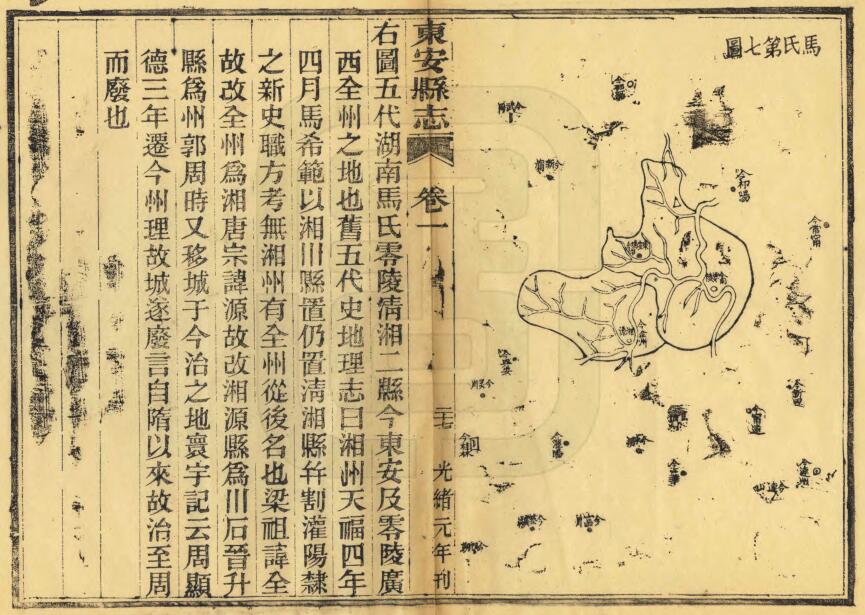 馬氏第七圖
今祁陽
今常甯
今全州
今灌陽
今新田
今道州
今連州
東安縣志
卷一
二七
光緒元年刊
右圖五代湖南馬氏零陵清湘二縣今東安及零陵廣
西全州之地也舊五代史地理志曰湘州天福四年
四月馬希範以湘川縣置仍置清湘縣幷割灌陽隸
之新史職方考無湘州有全州從後名也梁祖諱全
故改全州爲湘唐宗諱源故改湘源縣爲川石晉升
縣爲州郭周時又移城于今治之地寰宇記云周顯
德三年遷今州理故城遂廢言自隋以來故治至周
而廢也